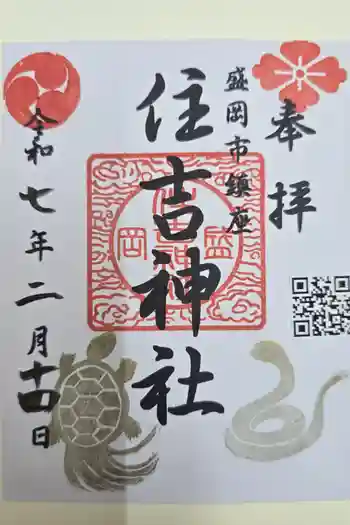 奉拝
盛岡市鎮座
住吉神社
盛岡
令和七年二月十四日